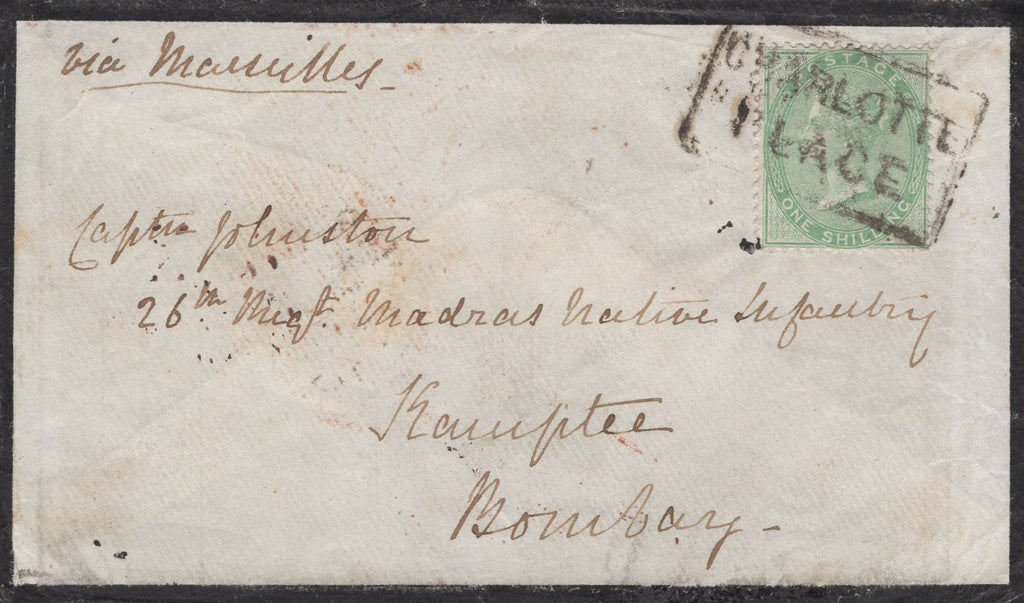 via Marseilles
POSTAGE
CHARLOTTE
PLACE
ONE SHILLING
Captn Johnston
26th Regt. Madras Native Infantry
Kamptee
Bombay -